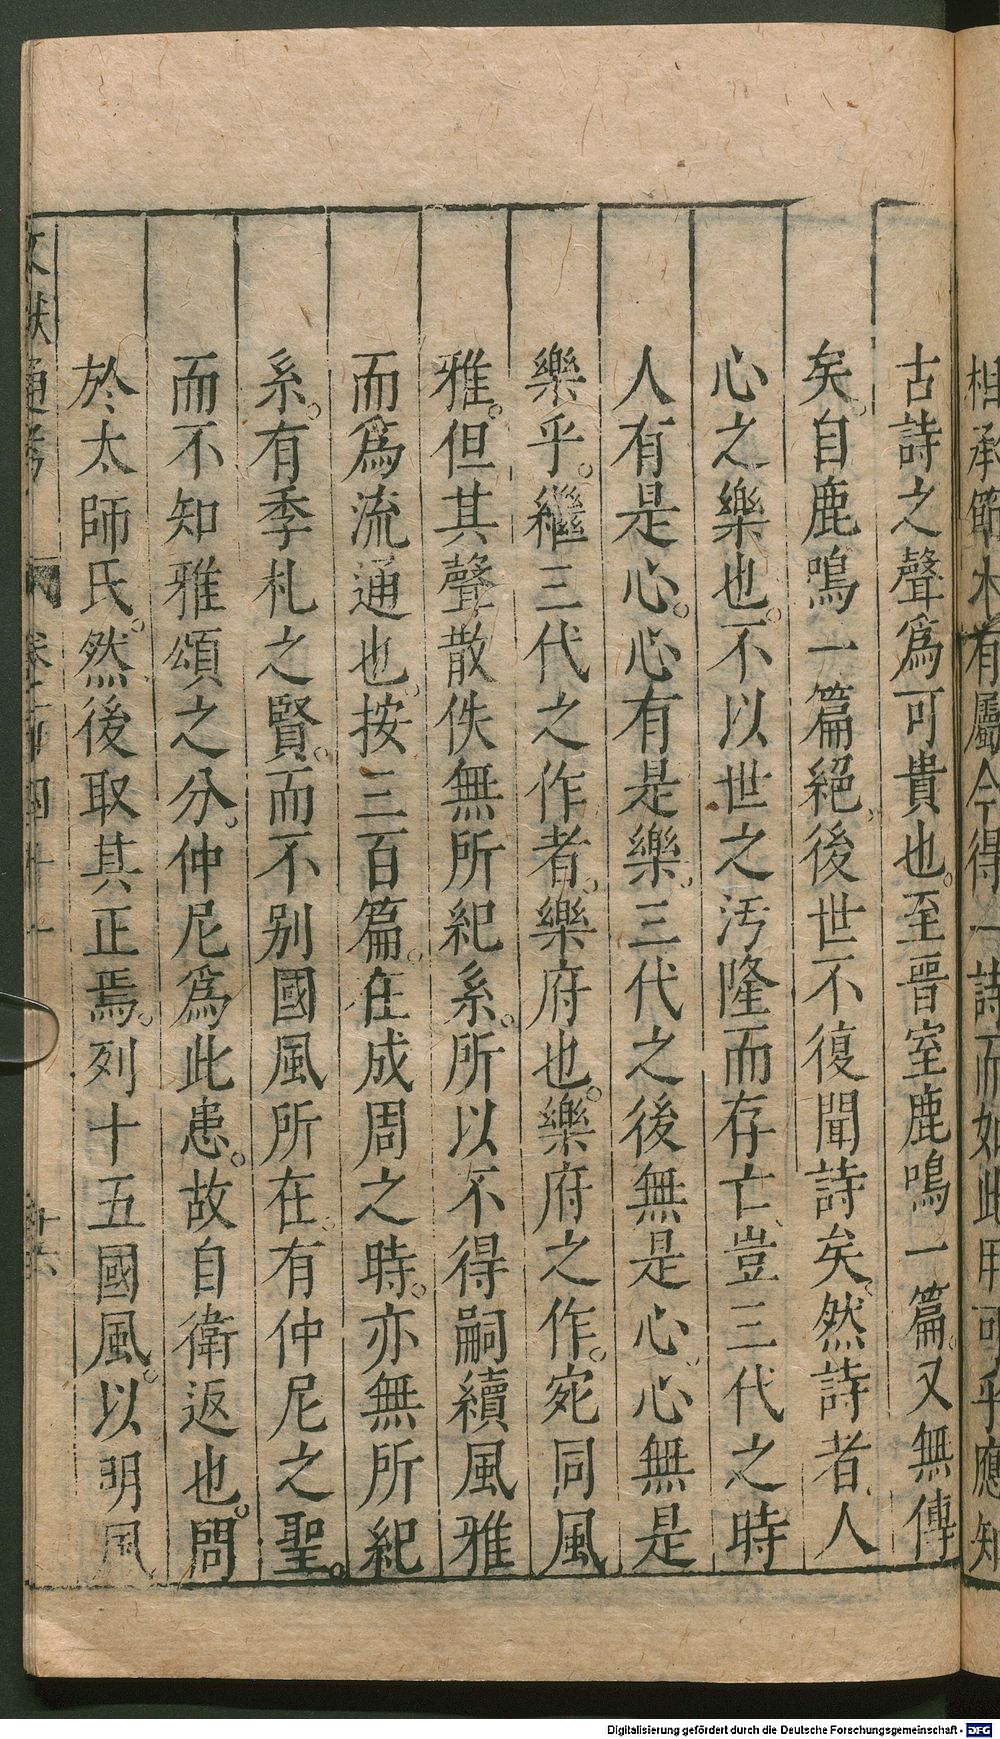 相承節木有屬今得一詩而如此用可乎應知
古詩之聲爲可貴也。至晋室鹿鳴一篇。又無傳
矣。自鹿鳴一篇絕、後世不復聞詩矣。然詩者、人
心之樂也。不以世之汚隆而存亡、豈三代之時
人有是心。心有是樂。三代之後無是心。心無是
樂乎。繼三代之作者。樂府也。樂府之作。宛同風
雅。但其聲散佚無所紀系。所以不得嗣續風雅
而爲流通也。按三百篇。在成周之時。亦無所紀
系。有季札之賢。而不别國風所在。有仲尼之聖。
而不知雅頌之分。仲尼爲此患。故自衛返也。問
於太師氏。然後取其正焉。列十五國風。以明風
文獻通考 卷一百四十一 十六
Digitalisierung gefördert durch die Deutsche Forschungsgemeinschaft - DFG